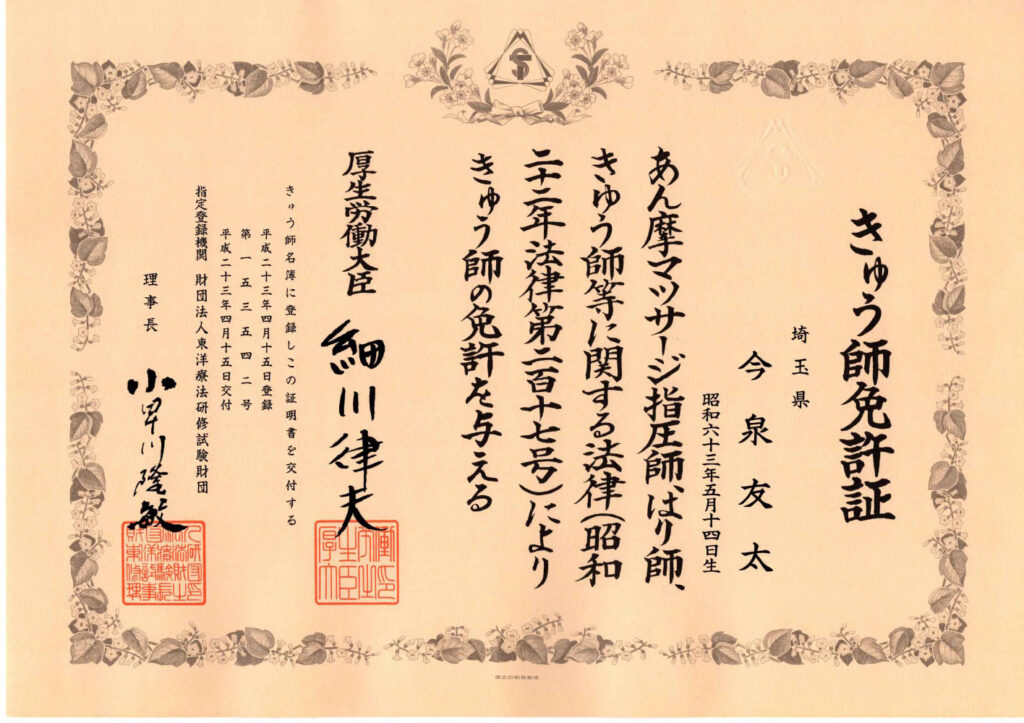 きゅう師免許証
埼玉県
今泉友太
昭和六十三年五月十四日生
あん摩マツサージ指圧師、はり師、
きゆう師等に関する法律（昭和
二十二年法律第二百十七号）により
きゅう師の免許を与える
厚生労働大臣 細川律夫
きゅう師名簿に登録しこの証明書を交付する
平成二十三年四月十五日登録
第一五三五四二号
平成二十三年四月十五日交付
指定登録機関 財団法人東洋療法研修試験財団
理事長 小早川隆敏